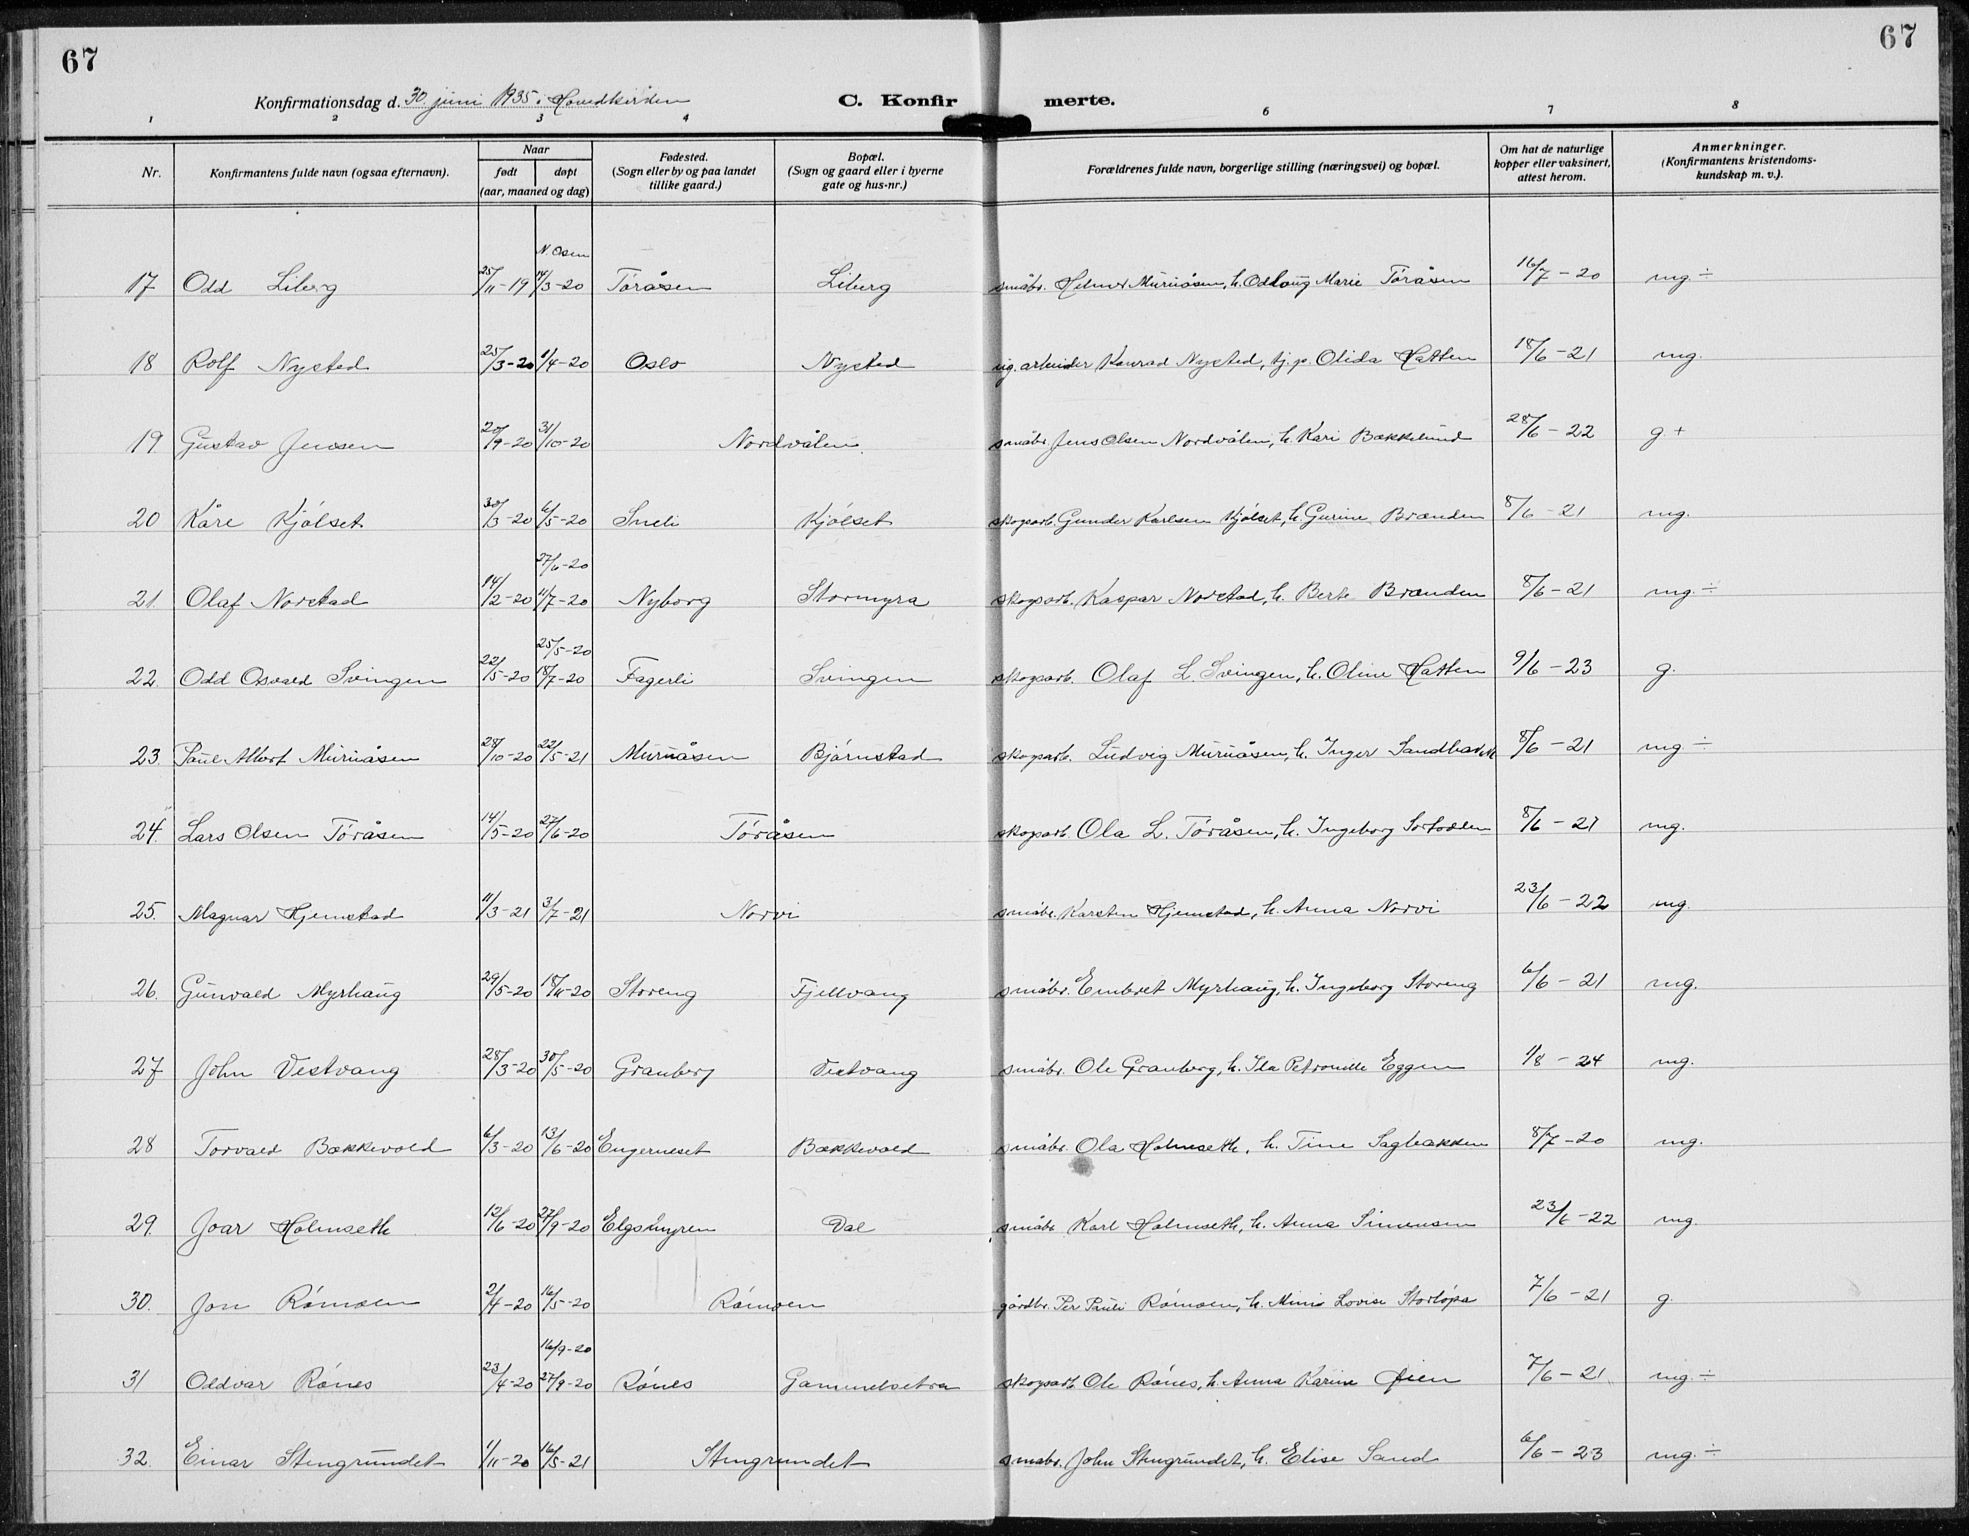 67
67
Konfirmationsdag d. 30. juni 1935 i Hovedkirken
C. Konfirmerte.
1 2 3 4 6 7 8
Nr. Konfirmantens fulde navn (ogsaa efternavn). Naar født døpt (aar, maaned og dag) Fødested. (Sogn eller by og paa landet tillike gaard.) Bopæl. (Sogn og gaard eller i byerne gate og hus-nr.) Forældrenes fulde navn, borgerlige stilling (næringsvei) og bopæl. Om hat de naturlige kopper eller vaksinert, attest herom. Anmerkninger. (Konfirmantens kristendoms-kundskap m. v.).
N. Osen
17 Odd Liberg 25/11-19 14/3-20 Tøråsen Liberg småbr. Helmer Muruåsen, h. Odlaug Marie Tøråsen 16/7-20 mg ÷
18 Rolf Nysted 25/3-20 1/4-20 Oslo Nysted ug. arbeider Konrad Nysted, tj.p. Olida Hatten 18/6-21 mg.
19 Gustav Jensen 20/9-20 31/10-20 Nordvålen. småbr. Jens Olsen Nordvålen, h. Kari Bækkelund 28/6-22 g +
20 Kåre Kjølset 30/3-20 6/5-20 Sneli Kjølset skogsarb. Gunder Karlsen Kjølset, h. Gurine Brænden 8/6-21 mg.
27/6-20
21. Olaf Norstad 14/2-20 11/7-20 Nyborg Stormyra skogsarb. Kaspar Norstad, h. Berte Brænden 8/6-21 mg. ÷
25/5-20
22. Odd Osvald Svingen 22/5-20 18/7-20 Fagerli Svingen skogsarb. Olaf L. Svingen, h. Oline Hatten 9/6-23 g.
23. Paul Albert Muruåsen 28/10-20 22/5-21 Muruåsen Bjørnstad skogsarb. Ludvig Muruåsen, h. Inger Sandbakk 8/6-21 mg ÷
24. Lars Olsen Tøråsen 14/5-20 27/6-20 Tøråsen skogsarb. Ola L. Tøråsen, h. Ingeborg Sorkodden 8/6-21 mg.
25. Magnar Hjemstad 11/3-21 3/7-21 Norvi småbr. Karsten Hjemstad, h. Anna Norvi 23/6-22 mg.
26. Gunvald Myrhaug 29/5-20 18/11-20 Storeng Fjellvang småbr. Embret Myrhaug, h. Ingeborg Storeng 6/6-21 mg.
27 John Vestvang 28/3-20 30/5-20 Granberg Vestvang småbr. Ole Granberg, h. Ida Petronille Eggen 1/8-24 mg.
28 Torvald Bækkevold 6/3-20 13/6-20 Engerneset Bækkevold småbr. Ola Holmseth, h. Tine Sagbakken 8/7-20 mg.
29. Joar Holmseth 12/6-20 27/9-20 Elgsmyren Dal småbr. Karl Holmseth, h. Anna Simensen 23/6-22 mg.
30. Jon Rømoen 2/4-20 16/5-20 Rømoen gårdbr. Per Pauli Rømoen, h. Minis Lovise Storløpa 7/6-21 g.
16/9-20
31 Oddvar Rønes 23/4-20 27/9-20 Rønes Gammelsetra skogsarb. Ole Rønes, h. Anna Karine Øien 7/6-21 mg. ÷
32. Einar Stengrundet 1/11-20 16/5-21 Stengrundet småbr. John Stengrundet, h. Elise Sand 6/6-23 mg. ÷